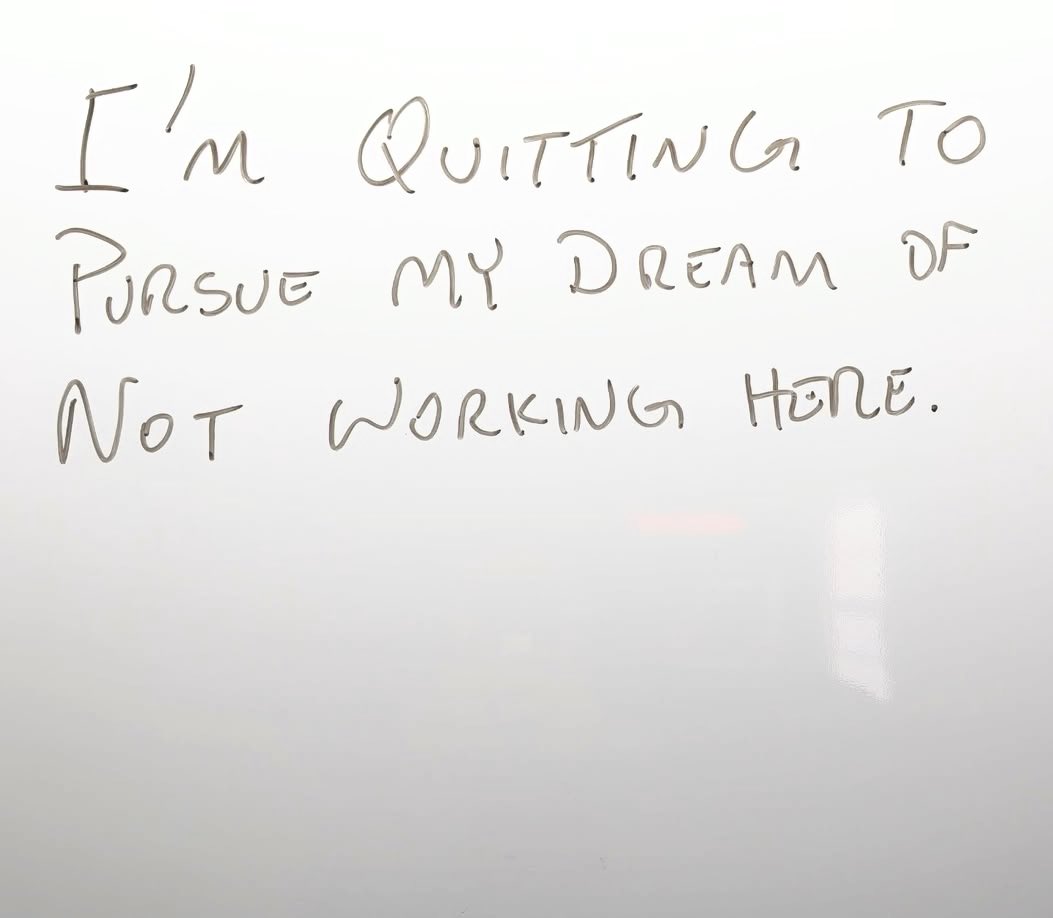 I'M QUITTING TO
PURSUE MY DREAM OF
NOT WORKING HERE.